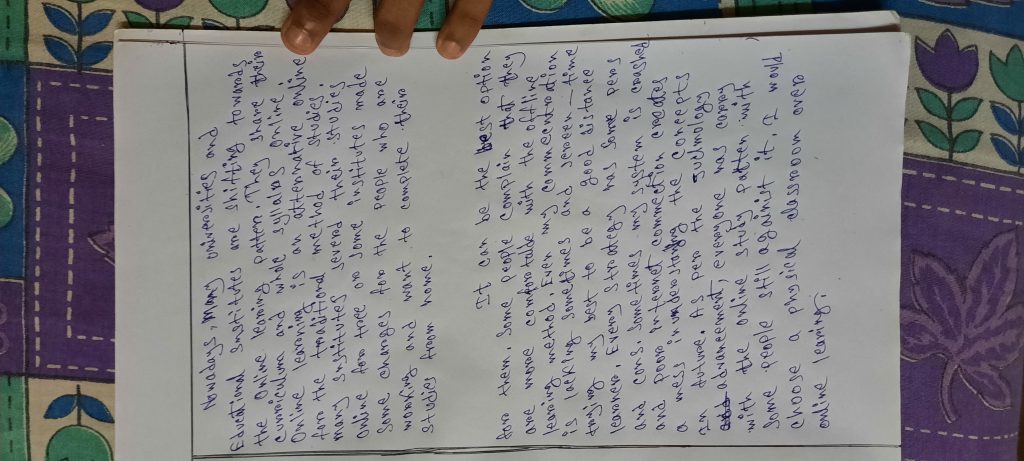 Nowadays, many universities and
Educational Institutes are shifting towards
the online learning patter. They share their
curriculum and whole syllabs online.
Online learning is an atternative online
for the traditional method of studies.
many Institutes serend their studies
online for free or some institutes made
some charges for the people who are
working and want to complete their
studies from home.
It can be the best option
for them. Some people complain that they
are more comfortable with the offline
learing method. Even my commentration
is lacking sometimes and screen-time
trying my best to be a good distance
learner. Every strategy has some pros
and cons. sometimes my system is crashed
and poor Internet connection creates
a mess in understanding the concepts
In future. As per the technology
advancement, everyone has carry
with the online study patten with
some people still againist it. I would
choose a physical classroom over
online learing.